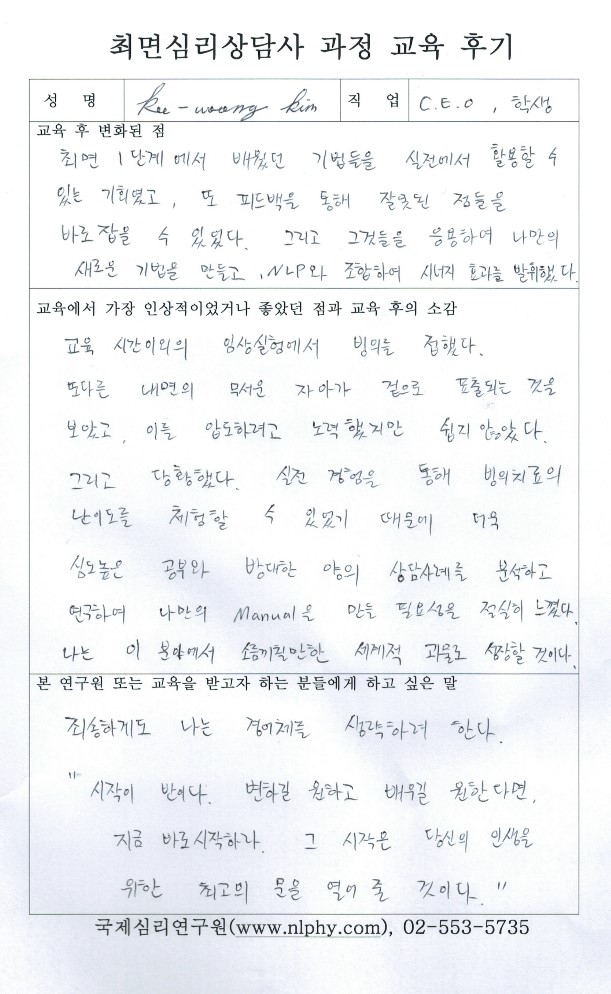 최면심리상담사 과정 교육 후기
성 명 Kee-woong kim 직 업 C.E.O, 학생
교육 후 변화된 점
최면 1단계에서 배웠던 기법들을 실전에서 활용할 수
있는 기회였고, 또 피드백을 통해 잘못된 점들을
바로잡을 수 있었다. 그리고 그것들을 응용하여 나만의
새로운 기법을 만들고, NLP와 조합하여 시너지 효과를 발휘했다.
교육에서 가장 인상적이었거나 좋았던 점과 교육 후의 소감
교육 시간이외의 임상실험에서 빙의를 접했다.
또다른 내면의 무서운 자아가 겉으로 표출되는 것을
보았고, 이를 압도하려고 노력했지만 쉽지 않았다.
그리고 당황했다. 실전 경험을 통해 빙의치료의
난이도를 체험할 수 있었기 때문에 더욱
심도높은 공부와 방대한 양의 상담사례를 분석하고
연구하여 나만의 Manual을 만들 필요성을 절실히 느꼈다.
나는 이 분야에서 소름끼칠만한 세계적 괴물로 성장할 것이다.
본 연구원 또는 교육을 받고자 하는 분들에게 하고 싶은 말
죄송하게도 나는 경어체를 생략하려 한다.
"시작이 반이다. 변하길 원하고 배우길 원한다면,
지금 바로 시작하라. 그 시작은 당신의 인생을
위한 최고의 문을 열어 줄 것이다."
국제심리연구원(www.nlphy.com), 02-553-5735